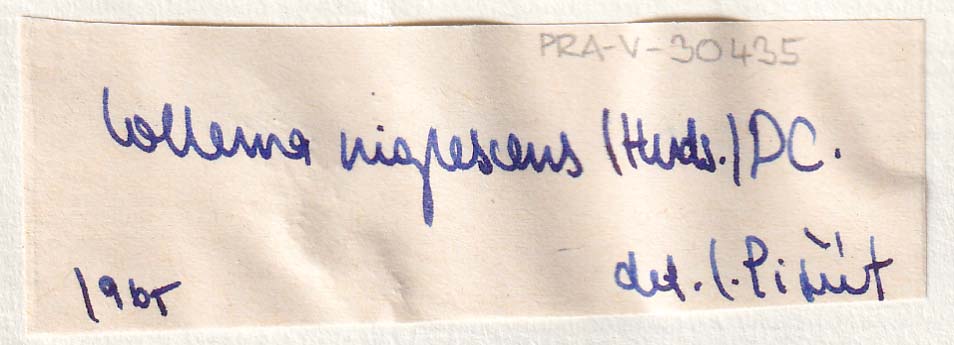 PRA-V-30435
Collema nigrescens (Huds.) DC.
1965 det. I. Pišút